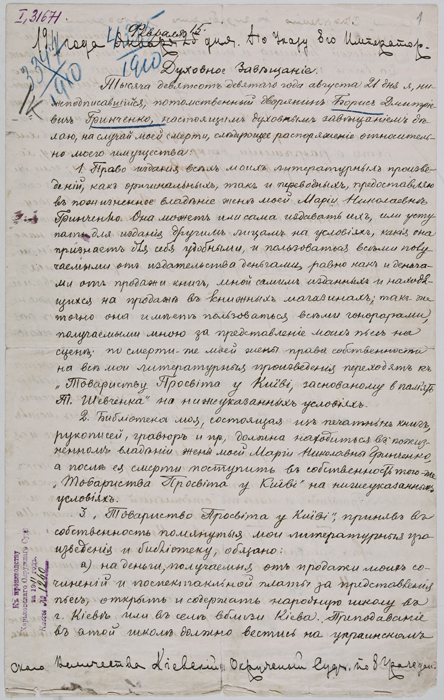 I, 31671
1
19 года Февраля 15 дня. По Указу Его Император-
334/1910
1910
Духовное Завѣщаніе.
Тысяча девятьсотъ девятаго года августа 21 дня я, ни-
жеподписавшійся, потомственный дворянинъ Борисъ Дмитріе-
вичъ Гринченко, настоящимъ духовнымъ завѣщаніемъ дѣ-
лаю, на случай моей смерти, слѣдующее распоряженіе относитель-
но моего имущества:
1. Право изданія всѣхъ моихъ литературныхъ произве-
деній, какъ оригинальныхъ, такъ и переводныхъ, представляю
въ пожизненное владѣніе женѣ моей Маріи Николаевнѣ
Гринченко. Она можетъ или сама издавать ихъ, или усту-
пать для изданія другимъ лицамъ на условіяхъ, какія она
признаетъ для себя удобными, и пользоваться всѣми полу-
чаемыми отъ издательства деньгами, равно какъ и деньга-
ми отъ продажи книгъ, мной самимъ изданныхъ и находя-
щихся на продажѣ въ книжныхъ магазинахъ; такъ же
точно она имѣетъ пользоваться всѣми гонорарами,
получаемыми мною за представленіе моихъ пьесъ на
сценѣ; по смерти-же моей жены право собственности
на всѣ мои литературныя произведенія переходятъ къ
„Товариству Просвіта у Київі, заснованому в память
Т. Шевченка“ на нижеуказанныхъ условіяхъ.
2. Библіотека моя, состоящая изъ печатныхъ книгъ,
рукописей, гравюръ и пр., должна находиться въ пожиз-
ненномъ владѣніи жены моей Маріи Николаевны Гринченко,
а послѣ ея смерти поступить въ собственность того-же
„Товариства Просвіта у Київі“ на нижеуказанныхъ
условіяхъ.
3. „Товариство Просвіта у Київі“, принявъ въ
собственность помянутыя мои литературныя про-
изведенія и библіотеку, обязано:
а) на деньги, получаемыя отъ продажи моихъ со-
чиненій и поспектакльной платы за представленія
пьесъ, открыть и содержать народную школу въ
г. Кіевѣ или въ селѣ вблизи Кіева. Преподаваніе
въ этой школѣ должно вестись на украинскомъ
скаго Величества Кіевскій Окружный Судъ, по 8 Граждан-